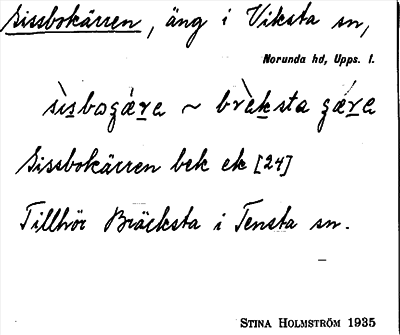 Sissbokärren, äng i Viksta sn,
Norunda hd, Upps. l.
sìsbogǽrɐ ~ brèksta gǽrɐ
Sissbokärren bek ek [24]
Tillhör Bräcksta i Tensta sn.
STINA HOLMSTRÖM 1935